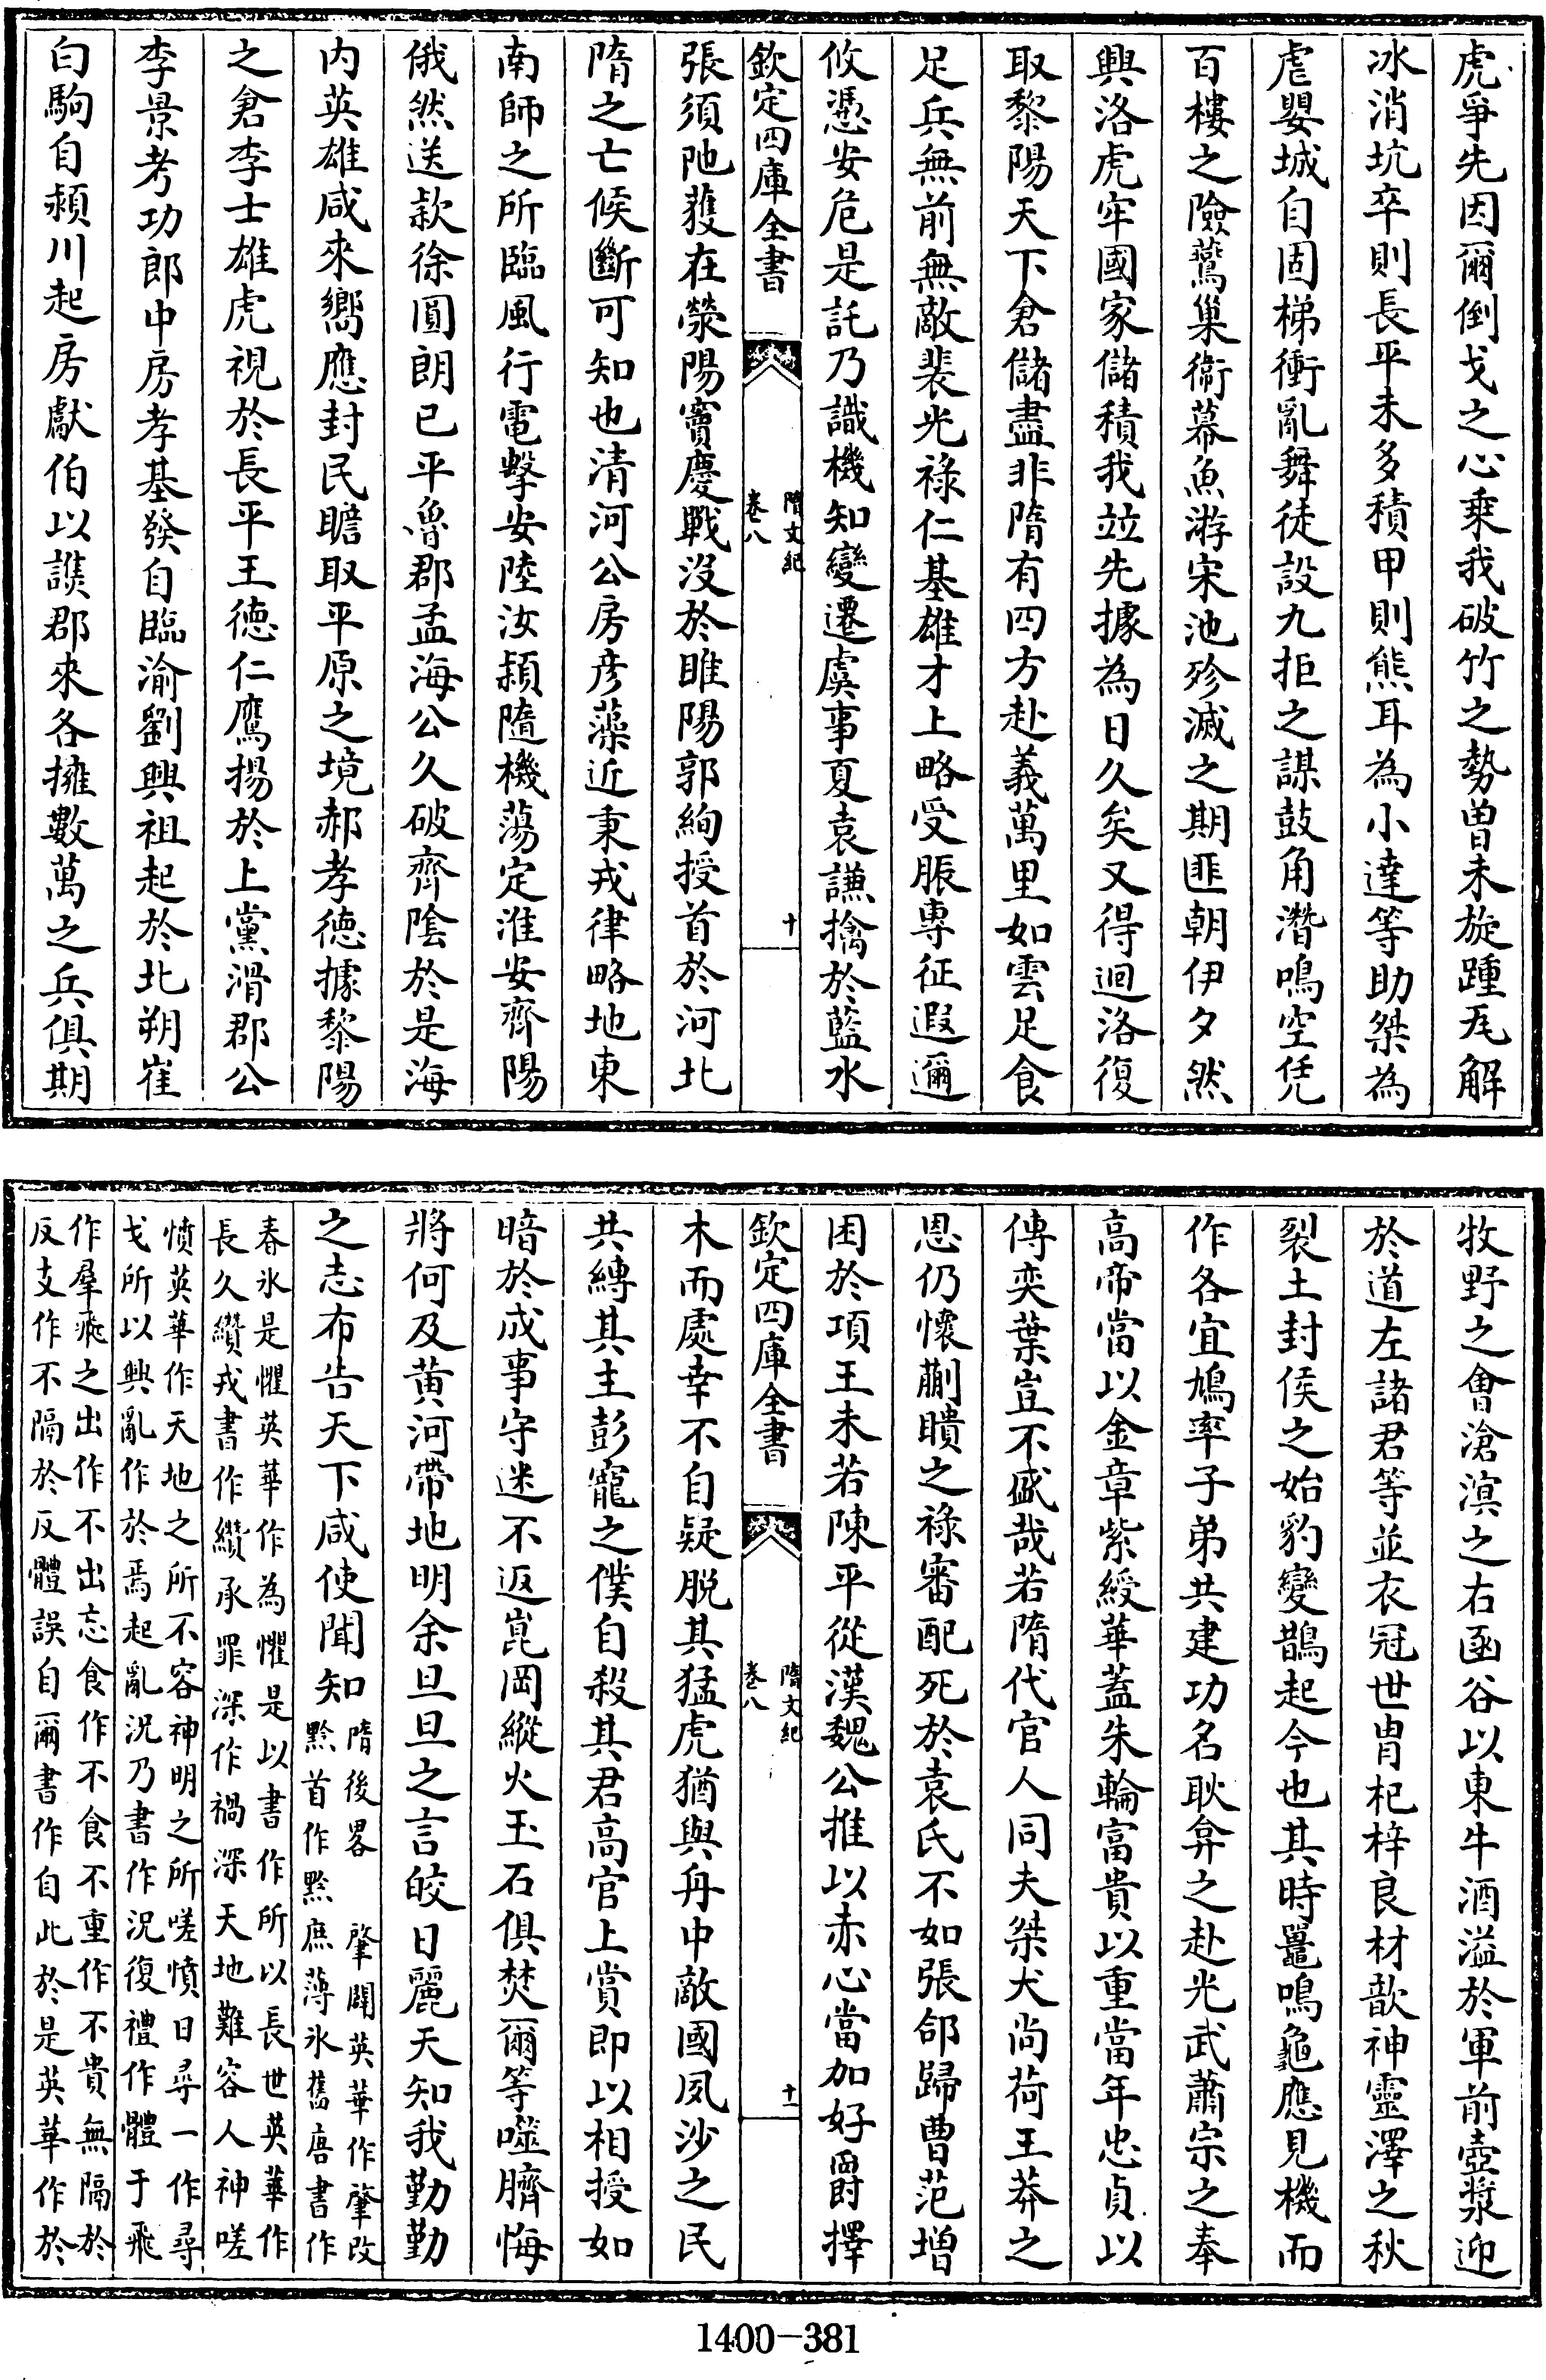 虎爭先因爾倒戈之心乗我破竹之勢曽未旋踵瓦解
冰消坑卒則長平未多積甲則熊耳為小達等助桀為
虐嬰城自固梯衝亂舞徒設九拒之謀鼓角潛鳴空凭
百樓之險鷰巢衞幕魚游宋池殄滅之期匪朝伊夕然
興洛虎牢國家儲積我竝先據為日久矣又得迴洛復
取黎陽天下倉儲盡非隋有四方赴義萬里如雲足食
足兵無前無敵裴光祿仁基雄才上略受脤專征遐邇
攸憑安危是託乃識機知變遷虞事夏袁謙擒於藍水
欽定四庫全書
隋文紀
卷八
十
張須陁獲在滎陽竇慶戰沒於睢陽郭絢授首於河北
隋之亡候斷可知也清河公房彦藻近秉戎律略地東
南師之所臨風行電擊安陸汝潁隨機蕩定淮安齊陽
俄然送款徐圓朗已平魯郡孟海公久破齊陰於是海
内英雄咸來嚮應封民瞻取平原之境郝孝德據黎陽
之倉李士雄虎視於長平王德仁鷹揚於上黨滑郡公
李景考功郎中房孝基發自臨渝劉興祖起於北朔崔
白駒自潁川起房獻伯以譙郡來各擁數萬之兵俱期
牧野之會滄溟之右函谷以東牛酒溢於軍前壺漿迎
於道左諸君等並衣冠世胄杞梓良材歆神靈澤之秋
裂土封侯之始豹變鵲起今也其時鼉鳴龜應見機而
作各宜鳩率子弟共建功名耿弇之赴光武蕭宗之奉
高帝當以金章紫綬華蓋朱輪富貴以重當年忠貞以
傳奕葉豈不盛哉若隋代官人同夫桀犬尚荷王莽之
恩仍懷蒯聵之祿審配死於袁氏不如張郃歸曹范増
困於項王未若陳平從漢魏公推以赤心當加好爵擇
欽定四庫全書
隋文紀
卷八
十一
木而處幸不自疑脱其猛虎猶與舟中敵國夙沙之民
共縛其主彭寵之僕自殺其君高官上賞即以相授如
暗於成事守迷不返崑岡縱火玉石俱焚爾等噬臍悔
將何及黄河帶地明余旦旦之言皎日麗天知我勤勤
之志布告天下咸使聞知
隋後畧　肇闢英華作肇改
黔首作黔庶薄氷舊唐書作
春氷是懼英華作為懼是以書作所以長世英華作
長久纘戎書作纘承罪深作禍深天地難容人神嗟
憤英華作天地之所不容神明之所嗟憤日尋一作尋
戈所以興亂作於焉起亂況乃書作况復禮作體于飛
作羣飛之出作不出忘食作不食不重作不貴無隔於
反支作不隔於反體誤自爾書作自此於是英華作於
1400-381